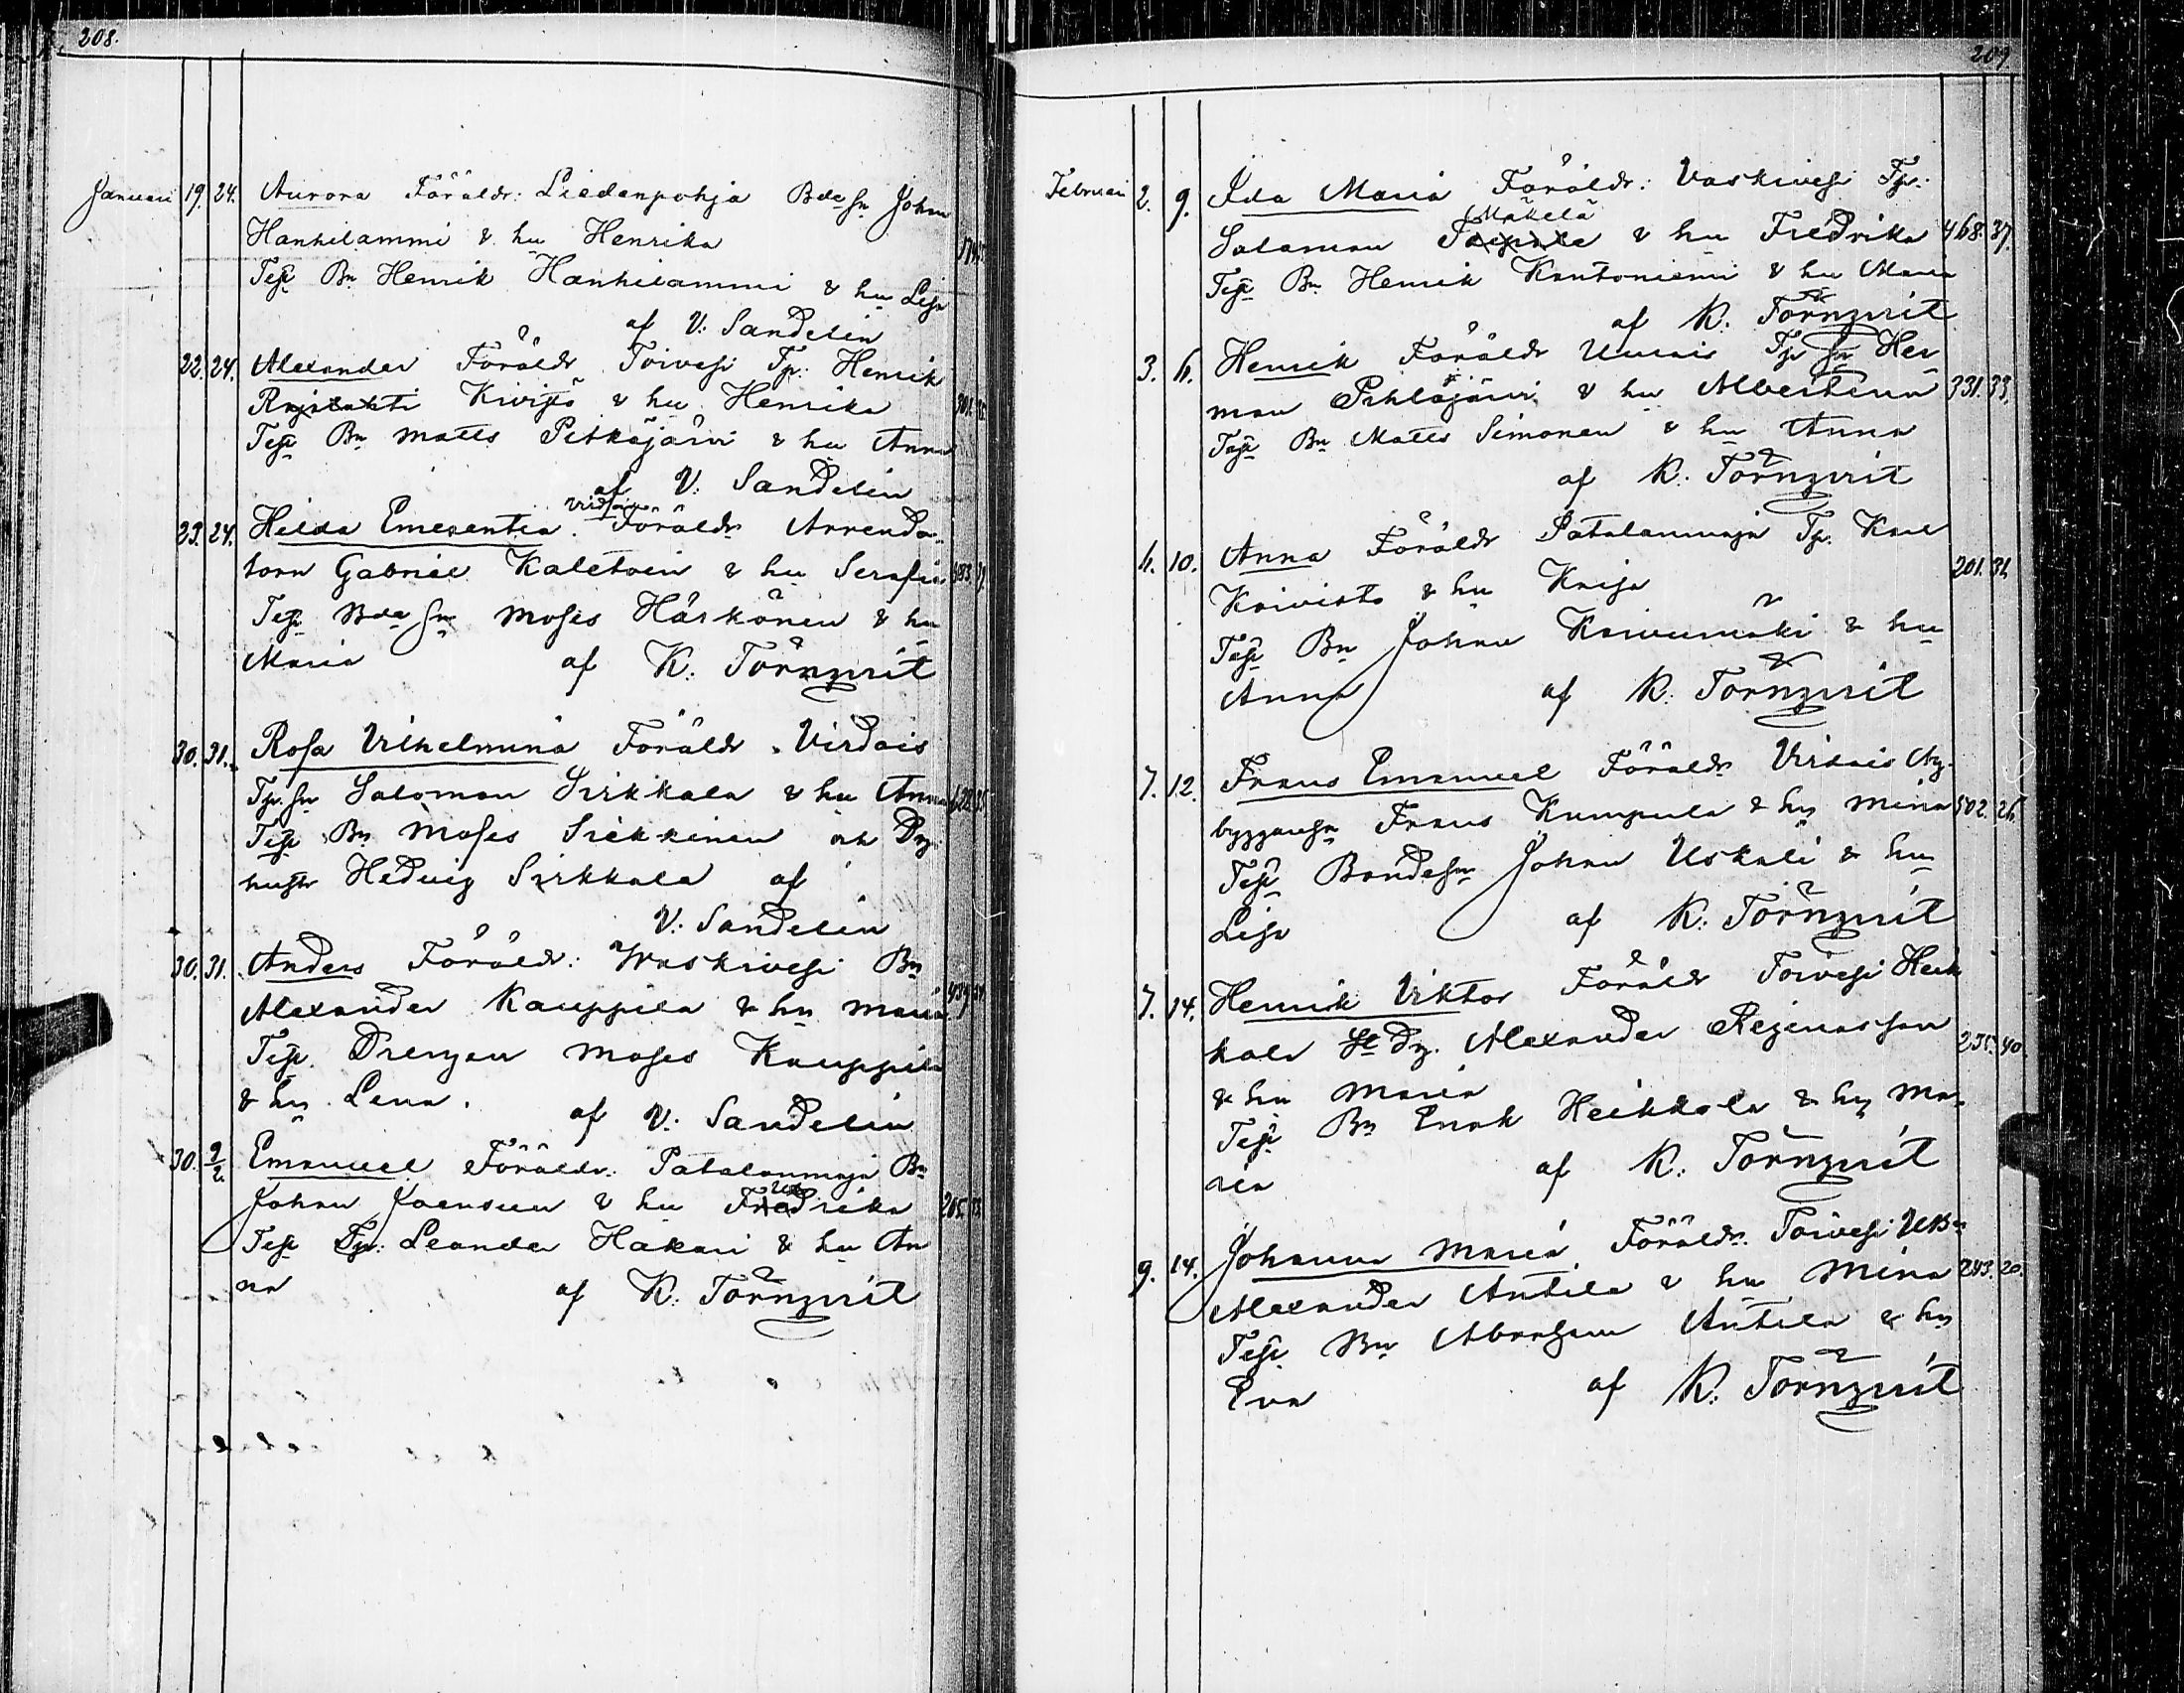 208.
Januari 19. 24. Aurora Föräldr: Liedenpohja Bdesn John
Hanhilammi & hu Henrika
Test Bn Henrik Hanhilammi & hu Lisa
af V. Sandelin
22. 24. Alexander Föräldr Toivesi Tp. Henrik
Kivijö & hu Henrika 301.
Test Bn Matts Pitkäjärvi & hu Anna
af V. Sandelin
Virdois
23. 24. Hilda Emerentia. Föräldr Arrenda-
torn Gabriel Kaletoin & hu Serafia
Test Bdesn Moses Härkönen & hu
Maria af K. Törnqvist
30. 31. Rosa Vilhelmina Föräldr. Virdois
Tp. sn Salomon Sirkkala & hu Anna
Test Bn Moses Sirkkinen och Dg.
hustr Hedvig Sirkkala af
V. Sandelin
30. 31. Anders Föräldr: Waskivesi Bn
Alexander Kauppila & hu Maria
Test. Drengen Moses Kauppila
& hu Lena. af V. Sandelin
30. 2/2 Emanuel Föräldr. Patalanmaja Bn
Johan Joensuu & hu Fredrika 205.
Test Tp: Leander Hakari & hu An
na af K. Törnqvist
209
Februari 2. 9. Ida Maria Föräldr: Vaskivesi Tp.
Mäkelä
Salomon & hu Fredrika 468. 37.
Test Bn Henrik Kantoniemi & hu Maria
af K. Törnqvist
3. 4. Henrik Föräldr Uurais Tp sn Her
man Pihlajärvi & hu Albertina 331. 33.
Test Bn Matts Simonen & hu Anna
af K. Törnqvist
4. 10. Anna Föräldr Patalanmaja Tp. Karl
Koivisto & hu Kaisa 201. 31.
Test Bn Johan Koivumäki & hu
Anna af K. Törnqvist
7. 12. Frans Emanuel Föräldr Virdois Ny-
byggaresn Frans Kumpula & hu Mina 502. 26.
Test Bondesn Johan Uskali & hu
Lisa af K. Törnqvist
7. 14. Henrik Viktor Föräldr Toivesi Heik
kala Dg. Alexander Reginasson 235. 40
& hu Maria
Test Bn Enok Heikkala & hu Ma-
ria af K. Törnqvist
9. 14. Johanna Maria Föräldr. Toivesi UBn
Alexander Antila & hu Mina 243. 20.
Test Bn Abraham Antila & hu
Eva af K. Törnqvist